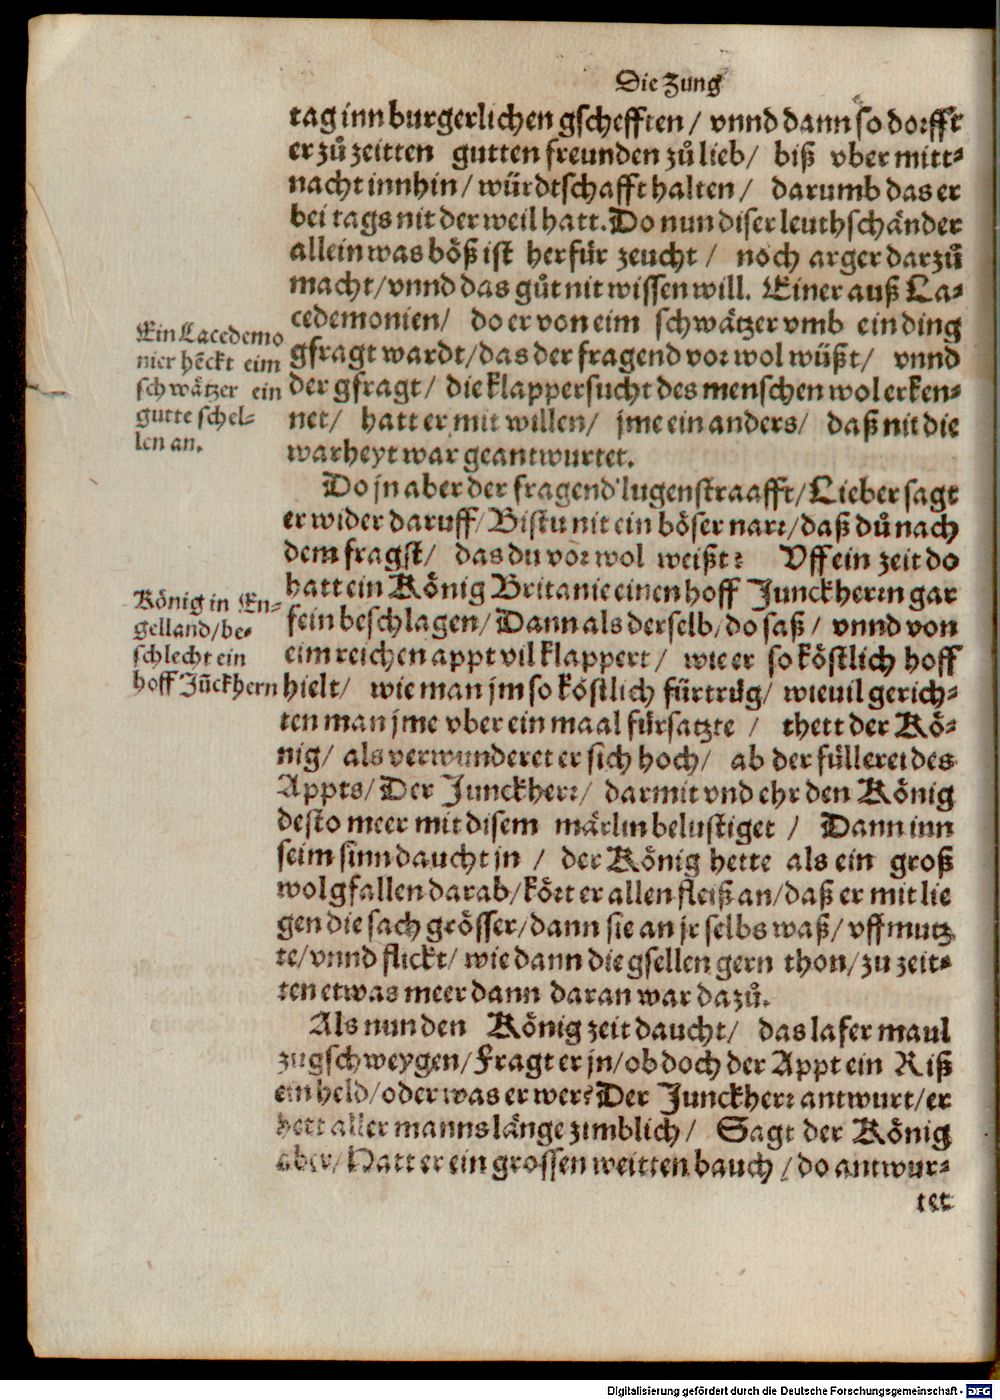 Die Zung
tag inn burgerlichen gschefften / vnnd dann so dorfft
er zů zeitten gutten freunden zů lieb / biß vber mitt-
nacht innhin / würdtschafft halten / darumb das er
bei tags nit der weil hatt. Do nun diser leuthschänder
allein was böß ist herfür zeucht / noch arger darzů
macht / vnnd das gůt nit wissen will. Einer auß La-
cedemonien / do er von eim schwätzer vmb ein ding
gfragt wardt / das der fragend vor wol wüßt / vnnd
der gfragt / die klappersucht des menschen wol erken-
net / hatt er mit willen / jme ein anders / daß nit die
warheyt war geantwurtet.
Ein Lacedemo
nier hẽckt eim
schwätzer ein
gutte schel-
len an.
Do jn aber der fragend lugenstraafft / Lieber sagt
er wider daruff / Bistu nit ein böser narr / daß dů nach
dem fragst / das du vor wol weißt? Vff ein zeit do
hatt ein König Britanie einen hoff Junckherrn gar
fein beschlagen / Dann als derselb / do saß / vnnd von
eim reichen appt vil klappert / wie er so köstlich hoff
hielt / wie man jm so köstlich fürtrůg / wieuil gerich-
ten man jme vber ein maal fürsatzte / thett der Kö-
nig / als verwunderet er sich hoch / ab der füllerei des
Appts / Der Junckherr / darmit vnd ehr den König
desto meer mit disem märlin belustiget / Dann inn
seim sinn daucht jn / der König hette als ein groß
wolgfallen darab / kört er allen fleiß an / daß er mit lie
gen die sach grösser / dann sie an jr selbs waß / vffmutz
te / vnnd flickt / wie dann die gsellen gern thon / zu zeit-
ten etwas meer dann daran war dazů.
König in En-
gelland / be-
schlecht ein
hoff Jũckhern
Als nun den König zeit daucht / das lafer maul
zugschweygen / Fragt er jn / ob doch der Appt ein Riß
ein held / oder was er wer? Der Junckherr antwurt / er
hett aller manns länge zimblich / Sagt der König
aber / Hatt er ein grossen weitten bauch / do antwur-
tet
Digitalisierung gefördert durch die Deutsche Forschungsgemeinschaft - DFG